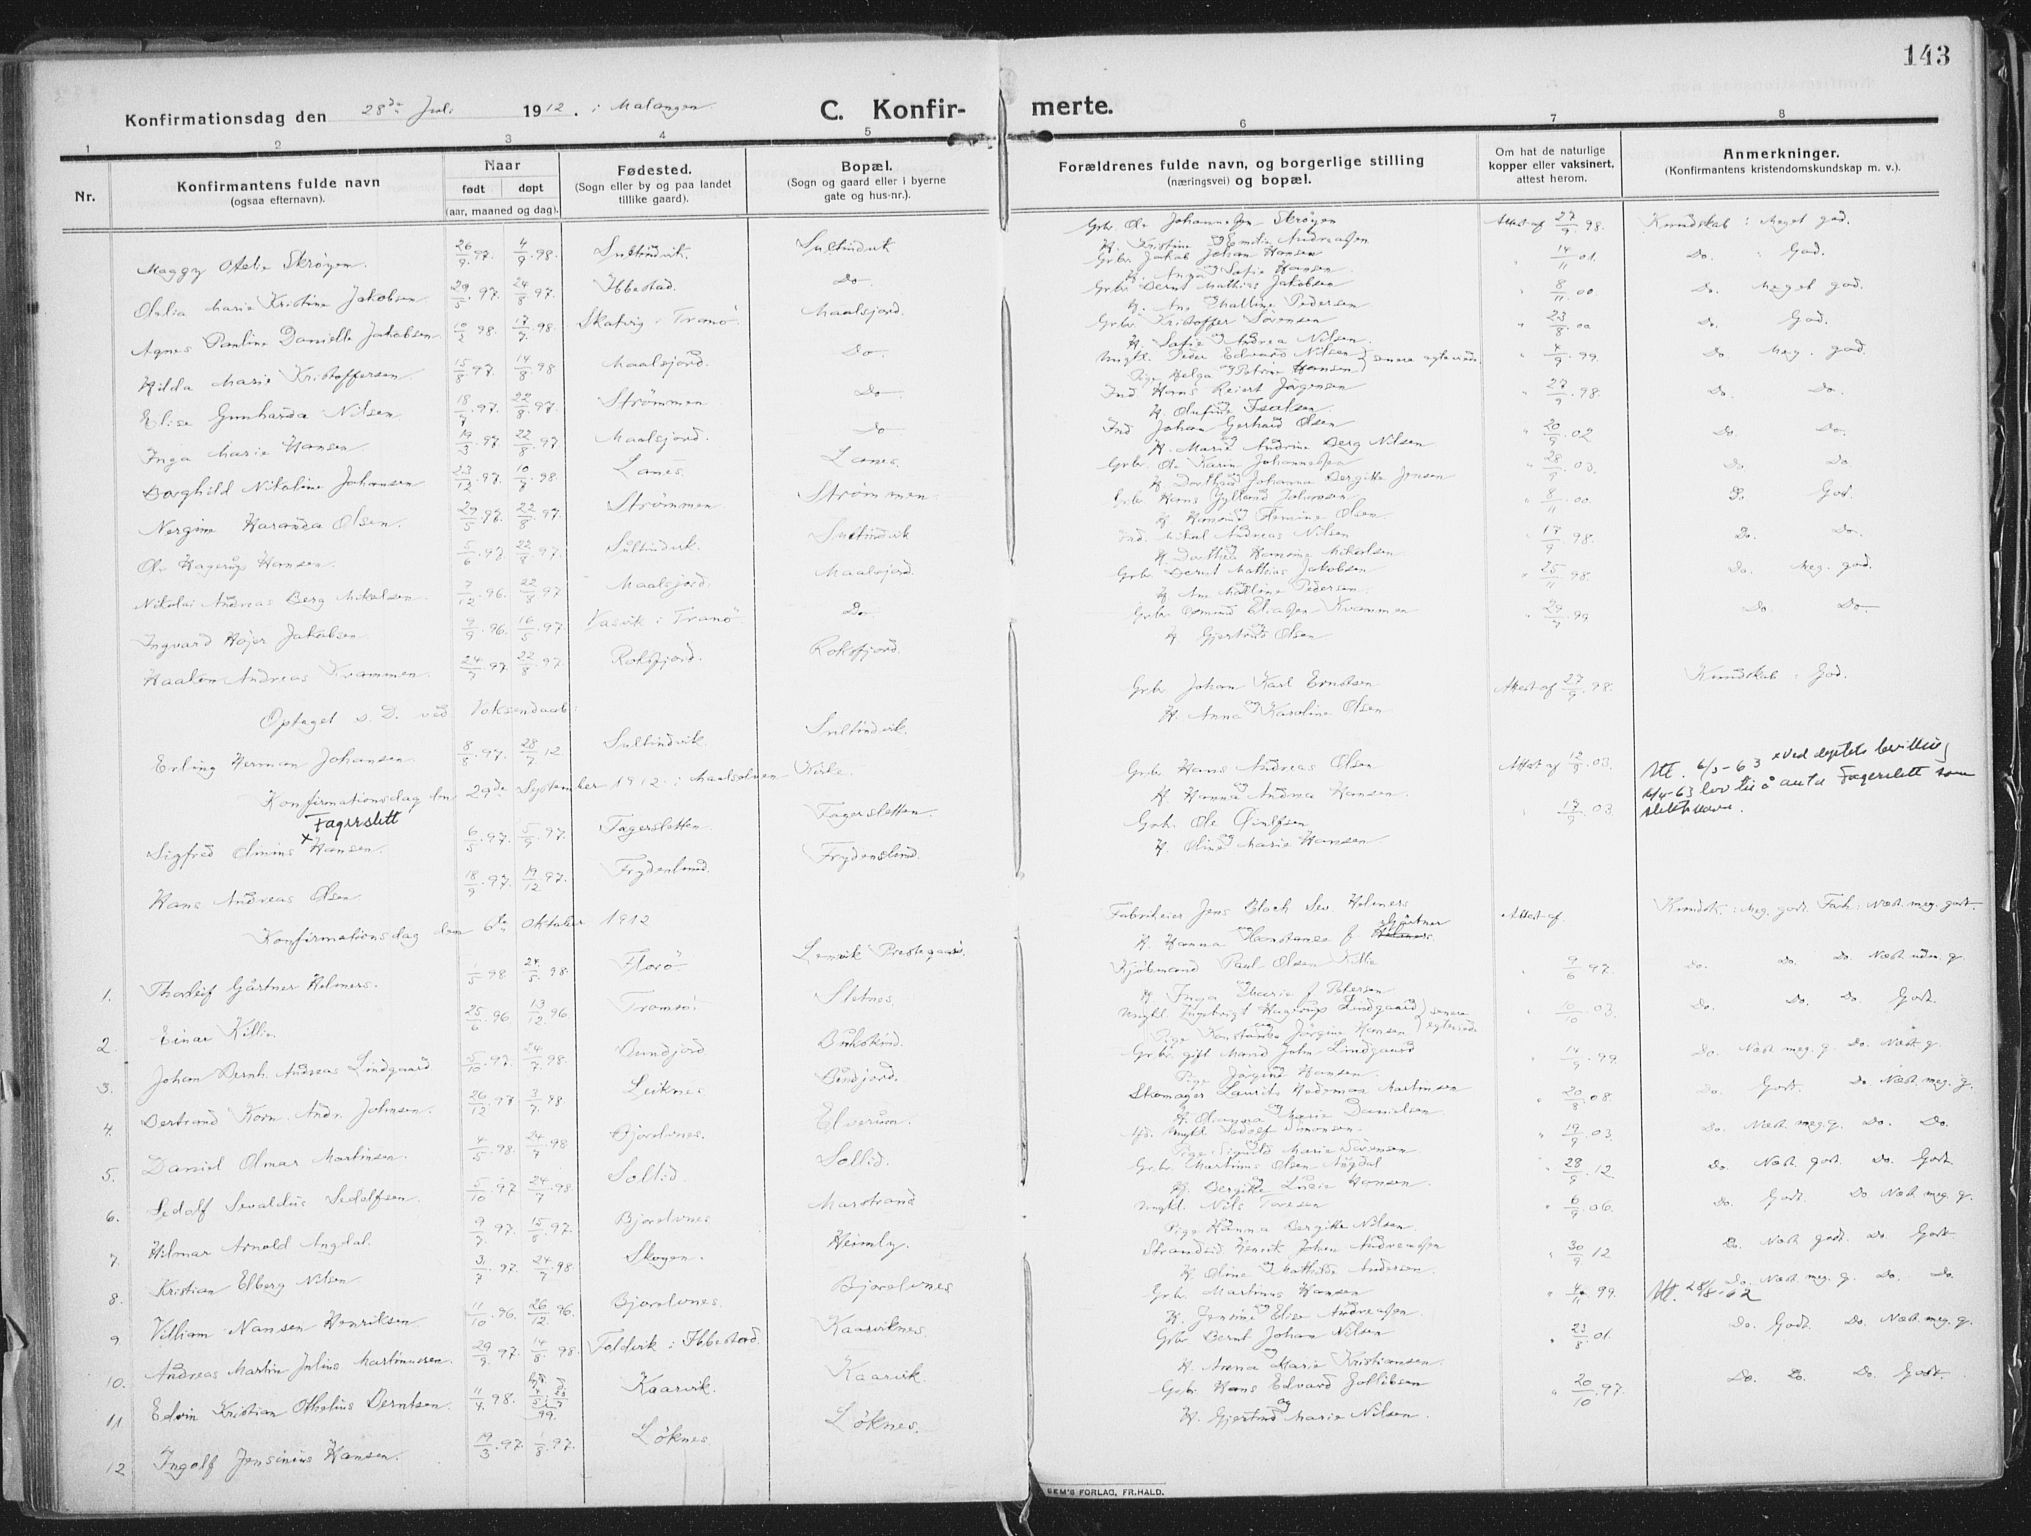 143
Konfirmationsdag den 28de Juli 1912. i Malangen.
C. Konfirmerte.
1 2 3 4 5 6 7 8
Nr.
Konfirmantens fulde navn
(ogsaa efternavn).
Naar
født døpt
(aar, maaned og dag).
Fødested.
(Sogn eller by og paa landet
tillike gaard).
Bopæl.
(Sogn og gaard eller i byerne
gate og hus-nr.).
Forældrenes fulde navn, og borgerlige stilling
(næringsvei) og bopæl.
Om hat de naturlige
kopper eller vaksinert,
attest herom.
Anmerkninger.
(Konfirmantens kristendomskundskap m. v.).
Maggy Otelie Skrøyen. 26/9.97. 4/9.98. Sultindvik. Sultindvik
Grbr. Ole Johannessen Skrøyen Attest af 27/9.98. Kundskab: Meget god.
H. Kristine Emilie Andreassen
Marie Kristine Jakobsen 29/5.97. 24/8.97. Ibbestad. Do.
Grbr. Jakob Johan Hansen 14/11.01. Do. God.
H. Anga Sofie Hansen.
Agnes Pauline Danielle Jakobsen 10/2.98. 17/7.98. Skatvig i Tranö. Maalsjord.
Grbr. Bernt Mathias Jakobsen 8/11.00. Do. Meget god.
H. Ane Malline Pedersen
Hilda Marie Kristoffersen. 15/8.97. 14/8.98 Maalsjord. Do.
Grbr. Kristoffer Sörensen 23/8.00 Do. God.
H. Sofie Andrea Nilsen.
Elise Gunharda Nilsen 18/7.97. 22/8.97. Strömmen. Do.
Ungkl. Peder Edvard Nilsen senere ægteviede 4/9.99. Do. Meg. god.
Pige Helga Petrine Hansen
Inga Marie Hansen. 19/3.97 22/8.97 Maalsjord. Do
Ind Hans Reiert Jörgensen 27/9.98. Do. Do.
H. Olufine Isaksen.
Borghild Nikoline Johansen 23/12.97. 10/7.98. Lanes. Lanes.
Ind Johan Gerhard Olsen 20/9.02 Do. Do.
H. Marie Andrine Berg Nilsen
Nergine Haranda Olsen. 22/8.97. Strömmen Strömmen.
Grbr. Ole Karin Johannessen 28/9.03. Do. Do
H. Dorthea Johanna Bergitte Jensen
Ole Hagerup Hansen. 5/6.97. 22/8.97. Sultindvik. Sultindvik
Grbr Hans Gylland Johansen 8/11.00. Do. God.
Nikolai Andreas Berg Mikalsen. 7/12.96. 22/8.97 Maalsjord. Maalsjord.
Ind. Mikal Andreas Nilsen 17/9.98. Do. Do.
H. Dorthea Hansine Mikalsen
Ingvard Højer Jakobsen 9/9.96. 16/5.97. Vasvik i Tranö. Do.
Grbr. Bernt Mathias Jakobsen 25/11.98. Do. Meg. god.
H. Ane Malline Pedersen.
Haakon Andreas Kvammen. 24/7.97. 22/8.97. Roksfjord. Roksfjord.
Grbr. Osmund Eliassen Kvammen 29/7.99 Do. Do
H. Gjertrud Olsen
Optaget s. D. ved Voksendaab:
Erling Herman Johansen. 8/8.97. 28/7 12 Sultindvik. Sultindvik.
Grbr Johan Karl Ernstsen Attest af 27/9.98. Kundskab: God.
H. Anna Karoline Olsen
Konfirmationsdag den 29de September 1912 i Maalselven Kirke.
Fagerslett
Sigfred Olmins xHansen. 6/5.97. 5/9.97. Fagersletten. Fagersletten.
Grbr Hans Andreas Olsen Attest af 12/9.03.
H. Hanna Andrea Hansen.
Att. 6/5-63 x Ved deptets bevilling
16/4-63 lov til å anta Fagerslett som
slektsnavn.
Hans Andreas Olsen 18/9.97. 19/12.97. Frydenlund. Frydenlund.
Grbr. Ole 17/9.03
H. Oline Marie Hansen
Konfirmationsdag den 6te Oktober 1912
1. Thorleif Gärtner Helmers. 1/5.98 24/5.98. Florö Lenvik Prestegaard.
Fabrikeier Jens Blach Sev. Helmers Attest af. Kundsk: Meg. godt. Forh: Næst. meg. godt.
H. Hanna Konstance f. Gärtner
2. Einar Killie. 25/6.96 13/12.96. Tromsö. Sletnes.
Kjøbmand Paul Olsen Killie 9/6.97. Do. Do. Do. Næst. uden. g.
H. Inga Marie f. Petersen
3. Johan Bernh. Andreas Lindgaard 5/10.97. 24/7.98. Bundjord
Ungkl. Ingebrigt Hagerup Lindgaard senere 10/10.03. Do. Do. Do. Godt.
Pige Konstanse Jörgine Hansen egteviede
4. Bertrand Korn. Andr. Johnsen. 26/12.97 3/7.98 Leiknes. Bundjord.
Grbr. gift Mand John Lindgaard 14/9.99 Do. Næst. meg. g. Do. Næst g.
Pige Jörgine Hansen.
5. Daniel Olmar Martinsen. 4/5.98. 24/7.98 Bjorelvnes. Elverum.
Skomager Laurits Hedemas Martinsen 20/8.08. Do. Godt. Do. Næst. meg. g.
H. Olianna Marie Danielsen.
6. Sedolf Sevaldus Sedolfsen. 5/10.97 24/7.98. Soltid. Sollid.
Ungkl. Sedolf Simonsen. 19/9.03. Do. Næst. meg. g. Do. Do.
Pige Sigurda Marie Sörensen
7. Hilmar Arnold Angdal. 9/7.97. 15/5.97. Bjorelvnes Marstrand
Grbr. Martinus Olsen Angdal 28/9.12 Do. Næst. godt. Do. Godt
H. Bergitte Lusie Hansen.
8. Kristian Elberg Nilsen 3/7.97. 24/7.98 Skogen. Heimly.
Ungkl. Nils Tovesen 6/9.06. Do. Godt. Do Næst. meg. g.
Pige Hanna Bergitte Nilsen.
9 Villiam Nansen Henriksen 11/10.96. 26/12.96. Bjorelvnes. Bjorelvnes
Strandsid. Henrik Johan Andreassen 30/9 12 Do. Næst. godt. Do. Godt
H. Oline Mathilde Andersen.
10. Andreas Martin Julius Martinussen. 29/9.97. 14/8.98. Foldvik i Ibbestad. Kaarviknes.
Grbr. Martinus Hansen 4/11.99. Att. 28/8-62 Do. Næst. meg. g. Do. Do.
H. Jensine Elise Andreassen.
11 Edvin Kristian Otholius Berntsen. 11/4.98. 99. Kaarvik. Kaarvik.
Grbr Bernt Johan Nilsen 23/8.01. Do. Godt. Do. Næst. meg. g.
H. Anna Marie Kristiansen.
12 Ingolf Jensinius Hansen. 19/3.97. 1/8.97. Löknes Löknes.
Grbr. Hans Edvard Gottlibsen 20/10.97. Do. Do. Do. Godt.
H. Gjertrud og Marie Nilsen.
SEM'S FORLAG, FR. HALD.